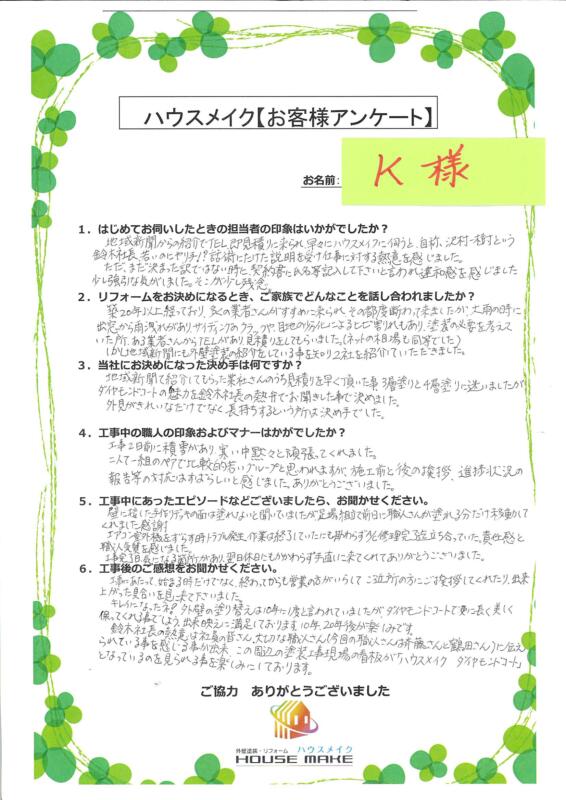 ハウスメイク【お客様アンケート】
お名前:
K 様
1．はじめてお伺いしたときの担当者の印象はいかがでしたか？
地域新聞からの紹介でTEL即見積りに来られ、早々にハウスメイクに伺うと、自称、沢村一樹という
鈴木社長、若いのにヤリ手!?話術にたけた説明を受け仕事に対する熱意を感じました
ただ、まだ決まった訳ではない時と、契約書に氏名等記入して下さいと言われ違和感を感じました
少し強引な気がしました。そこが少し残念。
2．リフォームをお決めになるとき、ご家族でどんなことを話し合われましたか？
築20年以上経っており、多くの業者さんがすすめに来られ、その都度断わって来ましたが、大雨の時に
出窓から雨洩れがありサイディングのクラックや、目地の劣化によるヒビ割れもあり、塗装の必要を考えて
いた所、ある業者さんからTELがあり見積りをしてもらいました。（ネットの相場も同等でした）
しかし地域新聞にも外壁塗装の紹介をしている事を知り2社を紹介していただきました。
3．当社にお決めになった決め手は何ですか？
地域新聞で紹介してもらった某社さんのうち見積りを早く頂いた事 3層塗りと4層塗りに迷いましたが
ダイヤモンドコートの魅力を鈴木社長の熱弁でお聞きした事で決めました。
外見がきれいなだけでなく長持ちするという所は決め手でした。
4．工事中の職人の印象およびマナーはいかがでしたか？
工事2日前に積雪があり、寒い中黙々と頑張ってくれました。
二人で一組のペアで比較的若いグループと思われますが、施工前と後の挨拶、進捗状況の
報告等の対応はすばらしいと感じました。ありがとうございました。
5．工事中にあったエピソードなどございましたら、お聞かせください。
壁に接した手作りデッキの面は塗れないと聞いていましたが足場組立て前日に職人さんが塗れる分だけ移動して
くれました 感謝!
エアコン室外機をずらす時トラブル発生、作業は終了していたにも拘わらず修理完了迄立ち合っていた、責任感と
職人気質を感じました。
工事完了目前になる箇所があり、翌日休日にもかかわらず手直しに来てくれてありがとうございました。
6．工事後のご感想をお聞かせください。
工事にあたって、始まる時だけでなく、終わってからも営業の方がいらしてご近所の方にご挨拶してくれたり、出来
上がった具合いを見に来て下さいました。
キレイになったネ? 外壁の塗り替えは10年に1度と言われていましたがダイヤモンドコートで更に長く美しく
保ってくれる事でしょう。出来映えに満足しております 10年、20年後が楽しみです。
鈴木社長の熱意は社員の皆さん、大切な職人さん（今回の職人さんは斉藤さんと鶴田さん）に伝え
られている事を感じる事が出来、この周辺の塗装工事現場の看板が「ハウスメイク ダイヤモンドコート」
となっているのを見られる事を楽しみにしております。
ご協力　ありがとうございました
外壁塗装・リフォーム ハウスメイク
HOUSE MAKE